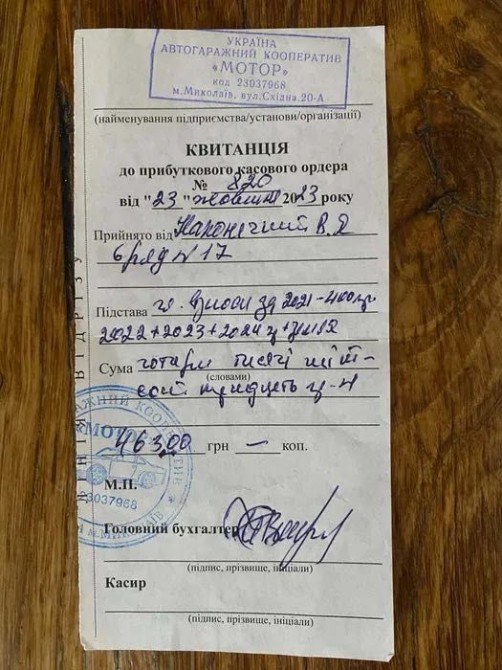 УКРАЇНА
АВТОГАРАЖНИЙ КООПЕРАТИВ
«МОТОР»
код 23037968
м.Миколаїв, вул.Східна.20-А
(найменування підприємства/установи/організації)
КВИТАНЦІЯ
до прибуткового касового ордера
№ 820
від "23" жовтня 2023 року
Прийнято від В.Я
6 ряд N 17
Підстава чл. внески за 2021-400гр
2022+2023+2024
Сума чотири тисячі шіст-
(словами)
сот тридцять
4630 грн — коп.
М.П.
Головний бухгалтер
(підпис, прізвище, ініціали)
Касир
(підпис, прізвище, ініціали)
ЛІНІЯ ВІДРІЗУ
ГАРАЖНИЙ КООПЕРАТИВ
МОТОР
23037968
м.МИКОЛАЇВ